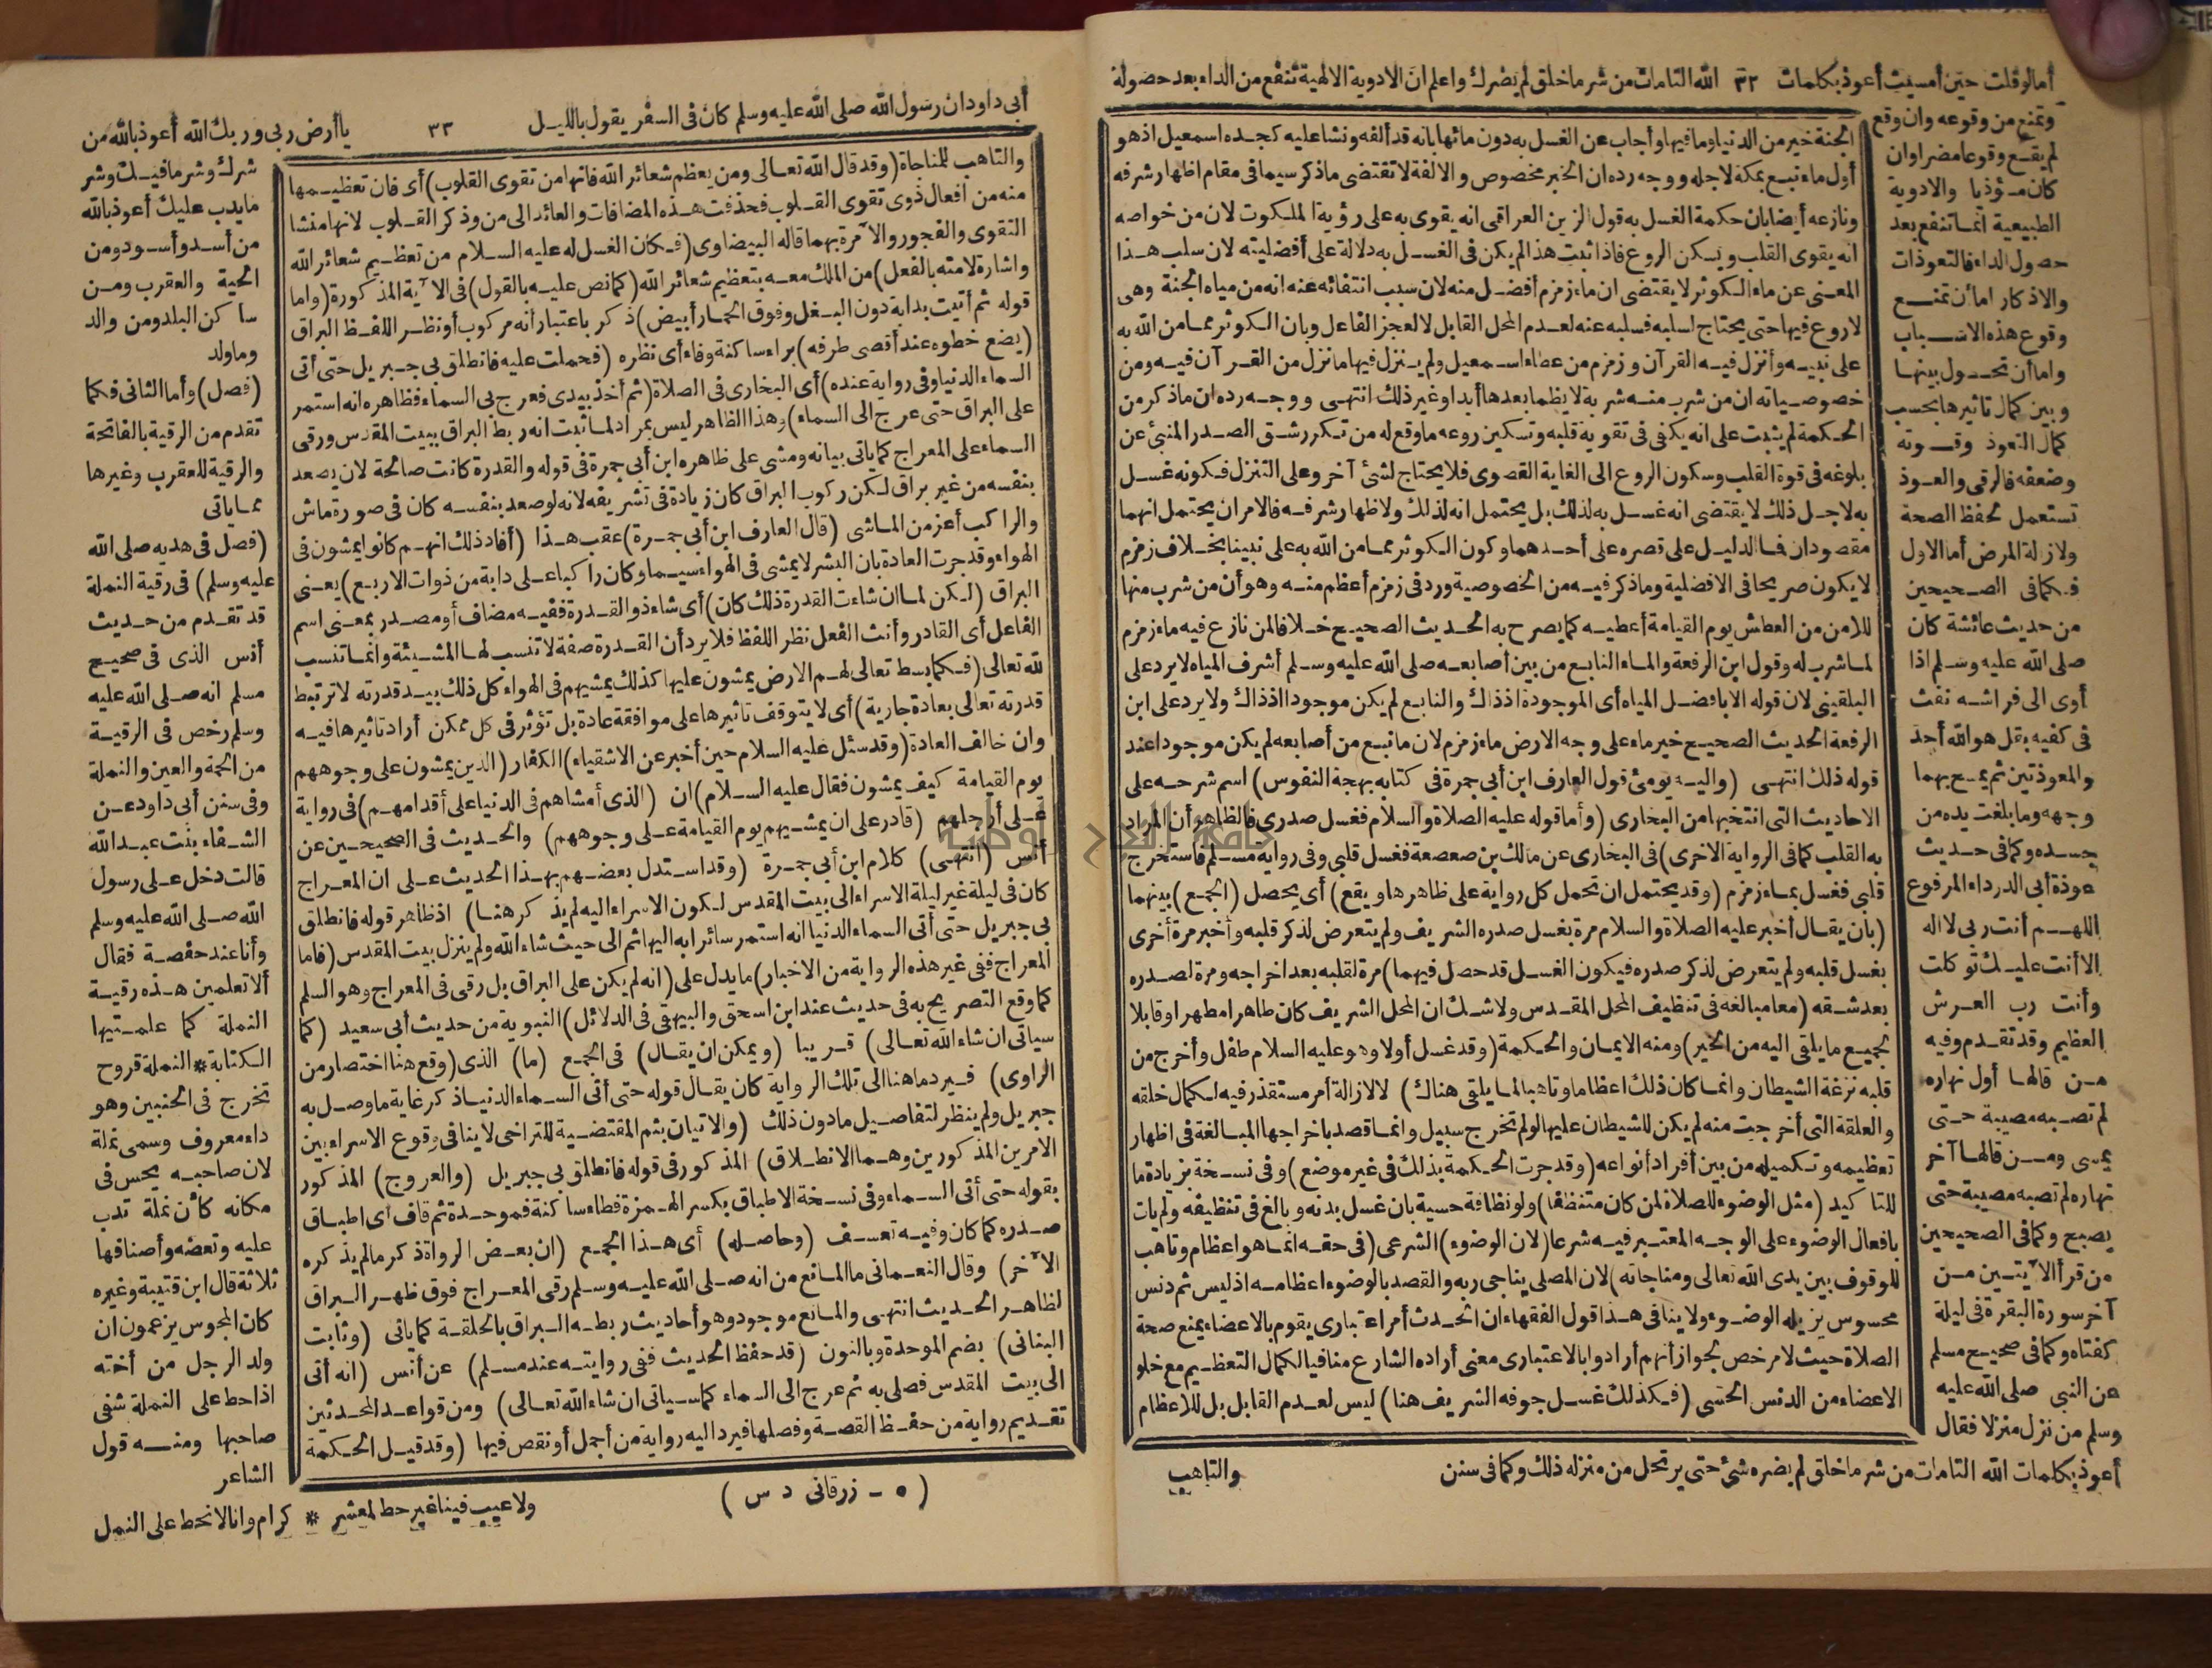 أمالوقلت حين أمسيت أعوذ بكلمات ٣٢ الله التامات من شر ما خلق لم يضرك واعلم ان الادوية الالهية تنفع من الداء بعد حصوله
وتمنع من وقوعه وان وقع
لم يقع وقوعا مضرا وان
كان مؤذيا والادوية
الطبيعية انما تنفع بعد
حصول الداء فالتعوذات
والاذكار اما أن تمنع
وقوع هذه الاسباب
واما أن تحول بينها
وبين كمال تاثيرها بحسب
كمال التعوذ وقوته
وضعفه فالرقى والعوذ
تستعمل لحفظ الصحة
ولازالة المرض أما الاول
فكما في الصحيحين
من حديث عائشة كان
صلى الله عليه وسلم اذا
أوى الى فراشه نفث
في كفيه بقل هو الله أحد
والمعوذتين ثم يمسح بهما
وجهه وما بلغت يده من
جسده وكما في حديث
عوذة أبي الدرداء المرفوع
اللهم أنت ربي لا اله
الا أنت عليك توكلت
وأنت رب العرش
العظيم وقد تقدم وفيه
من قالها أول نهاره
لم تصبه مصيبة حتى
يمسى ومن قالها آخر
نهاره لم تصبه مصيبة حتى
يصبح وكما في الصحيحين
من قرأ الآيتين من
آخر سورة البقرة في ليلة
كفتاه وكما في صحيح مسلم
عن النبي صلى الله عليه
وسلم من نزل منزلا فقال
أعوذ بكلمات الله التامات من شر ما خلق لم يضره شئ حتى يرتحل من منزله ذلك وكما في سنن
الجنة خير من الدنيا وما فيها وأجاب عن الغسل به دون مائها بانه قد ألفه ونشا عليه كجده اسمعيل اذ هو
أول ماء نبع بمكة لاجله ووجه رده ان الخبر مخصوص والالفة لا تقتضى ما ذكر سيما في مقام اظهار شرفه
ونازعه أيضا بان حكمة الغسل به قول الزين العراقي انه يقوى به على رؤية الملكوت لان من خواصه
انه يقوى القلب ويسكن الروع فاذا ثبت هذا لم يكن في الغسل به دلالة على أفضليته لان سلب هذا
المعنى عن ماء الكوثر لا يقتضى ان ماء زمزم أفضل منه لان سبب انتفائه عنه انه من مياه الجنة وهى
لا روع فيها حتى يحتاج لسلبه فسلبه عنه لعدم المحل القابل لا لعجز الفاعل وبان الكوثر مما من الله به
على نبيه وأنزل فيه القرآن وزمزم من عطاء اسمعيل ولم ينزل فيها ما نزل من القرآن فيه ومن
خصوصياته ان من شرب منه شربة لا يظما بعدها أبدا وغير ذلك انتهى ووجه رده ان ما ذكر من
الحكمة لم يثبت على انه يكفى في تقوية قلبه وتسكين روعه ما وقع له من تكرر شق الصدر المنبئ عن
بلوغه في قوة القلب وسكون الروع الى الغاية القصوى فلا يحتاج لشئ آخر وعلى التنزل فكونه غسل
به لاجل ذلك لا يقتضى انه غسل به لذلك بل يحتمل انه لذلك ولاظهار شرفه فالامران يحتمل انهما
مقصودان فما الدليل على قصره على أحدهما وكون الكوثر مما من الله به على نبينا بخلاف زمزم
لا يكون صريحا في الافضلية وما ذكر فيه من الخصوصية ورد في زمزم أعظم منه وهو أن من شرب منها
للامن من العطش يوم القيامة أعطيه كما يصرح به الحديث الصحيح خلافا لمن نازع فيه ماء زمزم
لما شرب له وقول ابن الرفعة والماء النابع من بين أصابعه صلى الله عليه وسلم أشرف المياه لا يرد على
البلقيني لان قوله الا بافضل المياه أى الموجودة اذ ذاك والنابع لم يكن موجودا اذ ذاك ولا يرد على ابن
الرفعة الحديث الصحيح خير ماء على وجه الارض ماء زمزم لان ما نبع من أصابعه لم يكن موجودا عند
قوله ذلك انتهى (واليه يومئ قول العارف ابن أبي جمرة في كتابه بهجة النفوس) اسم شرحه على
الاحاديث التى انتخبها من البخارى (وأما قوله عليه الصلاة والسلام فغسل صدرى فالظاهر أن المراد
به القلب كما في الرواية الاخرى) في البخارى عن مالك بن صعصعة فغسل قلبي وفي رواية مسلم فاستخرج
قلبي فغسل بماء زمزم (وقد يحتمل ان تحمل كل رواية على ظاهرها ويقع) أى يحصل (الجمع) بينهما
(بان يقال أخبر عليه الصلاة والسلام مرة بغسل صدره الشريف ولم يتعرض لذكر قلبه وأخبر مرة أخرى
بغسل قلبه ولم يتعرض لذكر صدره فيكون الغسل قد حصل فيهما) مرة لقلبه بعد اخراجه ومرة لصدره
بعد شقه (معا مبالغة في تنظيف المحل المقدس ولا شك ان المحل الشريف كان طاهرا مطهرا وقابلا
لجميع ما يلقى اليه من الخير) ومنه الايمان والحكمة (وقد غسل أولا وهو عليه السلام طفل وأخرج من
قلبه نزغة الشيطان وانما كان ذلك اعظاما وتاهبا لما يلقى هناك) لا لازالة أمر مستقذر فيه لكمال خلقه
والعلقة التى أخرجت منه لم يكن للشيطان عليها لو لم تخرج سبيل وانما قصد باخراجها المبالغة في اظهار
تعظيمه وتكميله من بين أفراد أنواعه (وقد جرت الحكمة بذلك في غير موضع) وفي نسخة بزيادة ما
للتاكيد (مثل الوضوء للصلاة لمن كان متنظفا) ولو نظافة حسية بان غسل بدنه وبالغ في تنظيفه ولم يات
بافعال الوضوء على الوجه المعتبر فيه شرعا (لان الوضوء) الشرعى (في حقه انما هو اعظام وتاهب
للوقوف بين يدى الله تعالى ومناجاته) لان المصلى يناجى ربه والقصد بالوضوء اعظامه اذ ليس ثم دنس
محسوس يزيله الوضوء ولا ينافى هذا قول الفقهاء ان الحدث أمر اعتبارى يقوم بالاعضاء يمنع صحة
الصلاة حيث لا مرخص لجواز أنهم أرادوا بالاعتبارى معنى أراده الشارع منافيا لكمال التعظيم مع خلو
الاعضاء من الدنس الحسى (فكذلك غسل جوفه الشريف هنا) ليس لعدم القابل بل للاعظام
والتاهب
أبى داود ان رسول الله صلى الله عليه وسلم كان في السفر يقول بالليل ٣٣ يا أرض ربى وربك الله أعوذ بالله من
والتاهب للمناجاة (وقد قال الله تعالى ومن يعظم شعائر الله فانها من تقوى القلوب) أى فان تعظيمها
منه من افعال ذوى تقوى القلوب فحذفت هذه المضافات والعائد الى من وذكر القلوب لانها منشا
التقوى والفجور والآمرة بهما قاله البيضاوى (فكان الغسل له عليه السلام من تعظيم شعائر الله
واشارة لامته بالفعل) من الملك معه بتعظيم شعائر الله (كما نص عليه بالقول) في الآية المذكورة (واما
قوله ثم أتيت بدابة دون البغل وفوق الحمار أبيض) ذكر باعتبار أنه مركوب أو نظر اللفظ البراق
(يضع خطوه عند أقصى طرفه) براء ساكنة وفاء أى نظره (فحملت عليه فانطلق بى جبريل حتى أتى
السماء الدنيا وفي رواية عنده) أى البخارى في الصلاة (ثم أخذ بيدى فعرج بى السماء فظاهره انه استمر
على البراق حتى عرج الى السماء) وهذا الظاهر ليس بمراد لما ثبت انه ربط البراق ببيت المقدس ورقى
السماء على المعراج كما ياتى بيانه ومشى على ظاهره ابن أبى جمرة في قوله والقدرة كانت صالحة لان يصعد
بنفسه من غير براق لكن ركوب البراق كان زيادة في تشريفه لانه لو صعد بنفسه كان في صورة ماش
والراكب أعز من الماشى (قال العارف ابن أبى جمرة) عقب هذا (أفاد ذلك انهم كانوا يمشون في
الهواء وقد جرت العادة بان البشر لا يمشى في الهواء سيما وكان راكبا على دابة من ذوات الاربع) يعنى
البراق (لكن لما ان شاءت القدرة ذلك كان) أى شاء ذو القدرة ففيه مضاف أو مصدر بمعنى اسم
الفاعل أى القادر وأنث الفعل نظر اللفظ فلا يرد أن القدرة صفة لا تنسب لها المشيئة وانما تنسب
لله تعالى (فكما بسط تعالى لهم الارض يمشون عليها كذلك يمشيهم في الهواء كل ذلك بيد قدرته لا ترتبط
قدرته تعالى بعادة جارية) أى لا يتوقف تاثيرها على موافقة عادة بل تؤثر في كل ممكن أراد تاثيرها فيه
وان خالف العادة (وقد سئل عليه السلام حين أخبر عن الاشقياء) الكفار (الذين يمشون على وجوههم
يوم القيامة كيف يمشون فقال عليه السلام) ان (الذى أمشاهم في الدنيا على أقدامهم) في رواية
على أرجلهم (قادر على ان يمشيهم يوم القيامة على وجوههم) والحديث في الصحيحين عن
أنس (انتهى) كلام ابن أبى جمرة (وقد استدل بعضهم بهذا الحديث على ان المعراج
كان في ليلة غير ليلة الاسراء الى بيت المقدس لكون الاسراء اليه لم يذكر هنا) اذ ظاهر قوله فانطلق
بى جبريل حتى أتى السماء الدنيا انه استمر سائرا به اليها ثم الى حيث شاء الله ولم ينزل بيت المقدس (فاما
المعراج ففى غير هذه الرواية من الاخبار) ما يدل على (انه لم يكن على البراق بل رقى في المعراج وهو السلم
كما وقع التصريح به في حديث عند ابن اسحق والبيهقى في الدلائل) النبوية من حديث أبى سعيد (كما
سياتى ان شاء الله تعالى) قريبا (ويمكن ان يقال) في الجمع (ما) الذى (وقع هنا اختصار من
الراوى) فيرد ما هنا الى تلك الرواية كان يقال قوله حتى أتى السماء الدنيا ذكر غاية ما وصل به
جبريل ولم ينظر لتفاصيل ما دون ذلك (والاتيان بثم المقتضية للتراخى لا ينافى وقوع الاسراء بين
الامرين المذكورين وهما الانطلاق) المذكور في قوله فانطلق بى جبريل (والعروج) المذكور
بقوله حتى أتى السماء وفي نسخة الاطباق بكسر الهمزة فطاء ساكنة فموحدة ثم قاف أى اطباق
صدره كما كان وفيه تعسف (وحاصله) أى هذا الجمع (ان بعض الرواة ذكر ما لم يذكره
الآخر) وقال النعمانى ما المانع من انه صلى الله عليه وسلم رقى المعراج فوق ظهر البراق
لظاهر الحديث انتهى والمانع موجود وهو أحاديث ربطه البراق بالحلقة كما ياتى (وثابت
البنانى) بضم الموحدة وبالنون (قد حفظ الحديث ففى روايته عند مسلم) عن أنس (انه أتى
الى بيت المقدس فصلى به ثم عرج الى السماء كما سياتى ان شاء الله تعالى) ومن قواعد المحدثين
تقديم رواية من حفظ القصة وفصلها فيرد اليه رواية من أجمل أو نقص فيها (وقد قيل الحكمة
شرك وشر ما فيك وشر
ما يدب عليك أعوذ بالله
من أسد وأسود ومن
الحية والعقرب ومن
ساكن البلد ومن والد
وما ولد
(فصل) وأما الثانى فكما
تقدم من الرقية بالفاتحة
والرقية للعقرب وغيرها
مما ياتى
(فصل في هديه صلى الله
عليه وسلم) في رقية النملة
قد تقدم من حديث
أنس الذى في صحيح
مسلم انه صلى الله عليه
وسلم رخص في الرقية
من الحمة والعين والنملة
وفي سنن أبى داود عن
الشفاء بنت عبد الله
قالت دخل على رسول
الله صلى الله عليه وسلم
وأنا عند حفصة فقال
ألا تعلمين هذه رقية
النملة كما علمتيها
الكتابة * النملة قروح
تخرج في الجنبين وهو
داء معروف وسمى نملة
لان صاحبه يحس في
مكانه كأن نملة تدب
عليه وتعضه وأصنافها
ثلاثة قال ابن قتيبة وغيره
كان المجوس يزعمون ان
ولد الرجل من أخته
اذا حط على النملة شفى
صاحبها ومنه قول
الشاعر
ولا عيب فينا غير حط لمعشر * كرام وانا لا نحط على النمل
(٥ - زرقانى د س)